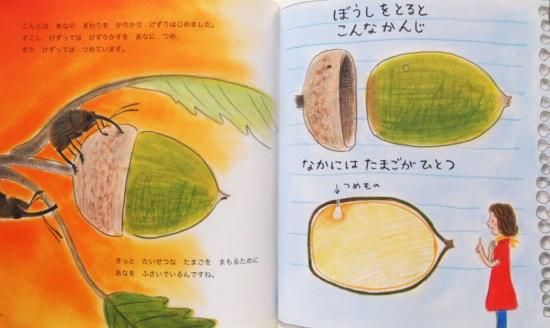 こんどは　あなの　まわりを　かりかり　けずりはじめました。
すこし　けずっては　けずりかすを　あなに　つめ、
また　けずっては　つめています。
きっと　たいせつな　たまごを　まもるために
あなを　ふさいでいるんですね。
ぼうしをとると
こんなかんじ
なかには　たまごが　ひとつ
つめもの